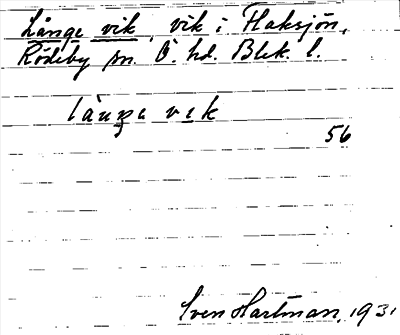 Långe vik, vik i Flaksjön,
Rödeby sn. Ö. hd. Blek. l.
långa vek
56
Sven Hartman, 1931